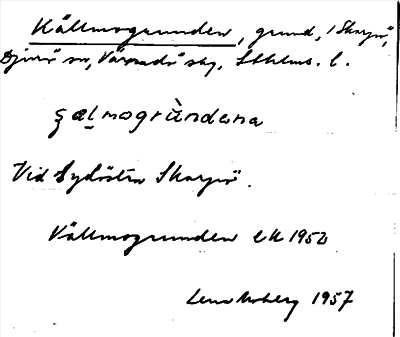 Källmogrunden, grund, i Skarpö,
Djurö sn, Värmdö skg, Sthlms. l.
ç æl̠mogrùndana
Vid sydöstra Skarpö.
Vällmogrunden EK 1952
Lena Moberg 1957